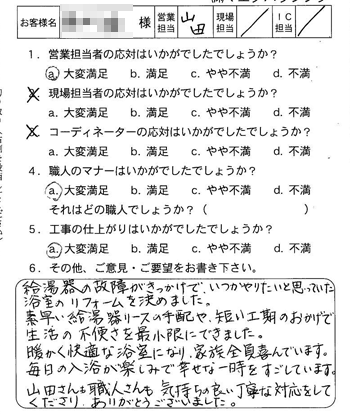 お客様名 様 営業担当 山田 現場担当 IC担当
1. 営業担当者の応対はいかがでしたでしょうか？
a. 大変満足 b. 満足 c. やや不満 d. 不満
現場担当者の応対はいかがでしたでしょうか？
a. 大変満足 b. 満足 c. やや不満 d. 不満
コーディネーターの応対はいかがでしたでしょうか？
a. 大変満足 b. 満足 c. やや不満 d. 不満
4. 職人のマナーはいかがでしたでしょうか？
a. 大変満足 b. 満足 c. やや不満 d. 不満
それはどの職人でしょうか？（ ）
5. 工事の仕上がりはいかがでしたでしょうか？
a. 大変満足 b. 満足 c. やや不満 d. 不満
6. その他、ご意見・ご要望をお書き下さい。
給湯器の故障がきっかけで、いつかやりたいと思っていた
浴室のリフォームを決めました。
素早い給湯器リースの手配や、短い工期のおかげで
生活の不便さを最小限にできました。
暖かく快適な浴室になり、家族全員喜んでいます。
毎日の入浴が楽しみで幸せな一時をすごしています。
山田さんも職人さんも気持ちの良い丁寧な対応をして
くださり、ありがとうございました。